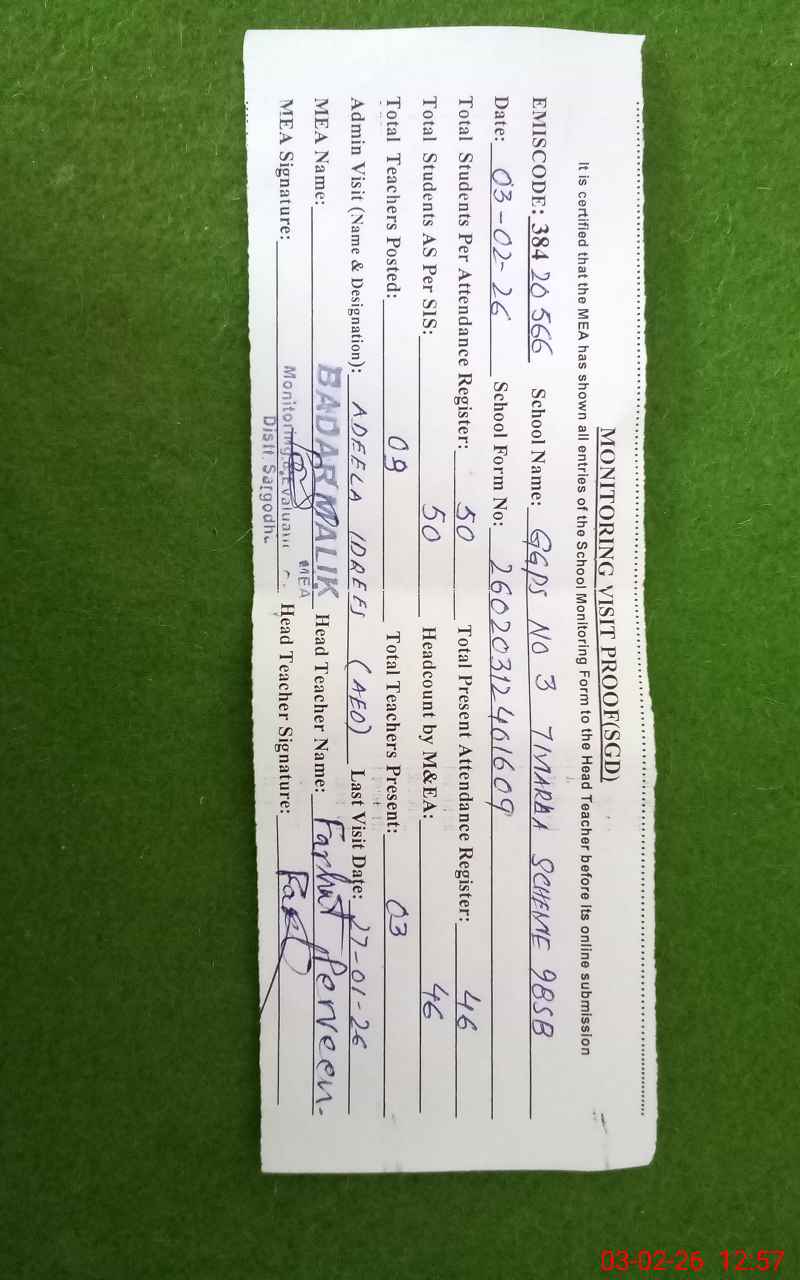 MONITORING VISIT PROOF(SGD)
It is certified that the MEA has shown all entries of the School Monitoring Form to the Head Teacher before its online submission
EMISCODE: 384 20 566 School Name: GGPS NO 3 7MARLA SCHEME 98SB
Date: 03-02-26 School Form No: 260203124601609
Total Students Per Attendance Register: 50 Total Present Attendance Register: 46
Total Students AS Per SIS: 50 Headcount by M&EA: 46
Total Teachers Posted: Total Teachers Present: 03
Admin Visit (Name & Designation): ADEELA IDREES (AEO) Last Visit Date: 27-01-26
MEA Name: BADAR MALIK Head Teacher Name: Farhat Perveen.
MEA
MEA Signature: Monitoring & Evaluati Head Teacher Signature:
Distt. Sargodha
03-02-26 12:57